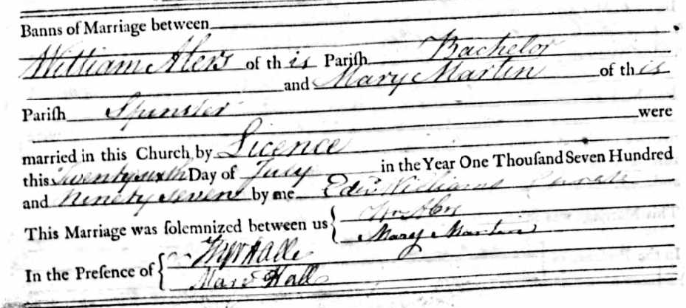 Banns of Marriage between
William Alers of this Parish Bachelor
and Mary Martin of this
Parish Spinster
were
married in this Church by Licence
this Twenty sixth Day of July in the Year One Thousand Seven Hundred
and Ninety Seven by me Edw. Williams Curate
This Marriage was solemnized between us { Wm Alers
Mary Martin
In the Presence of { Hall
Mary Hall